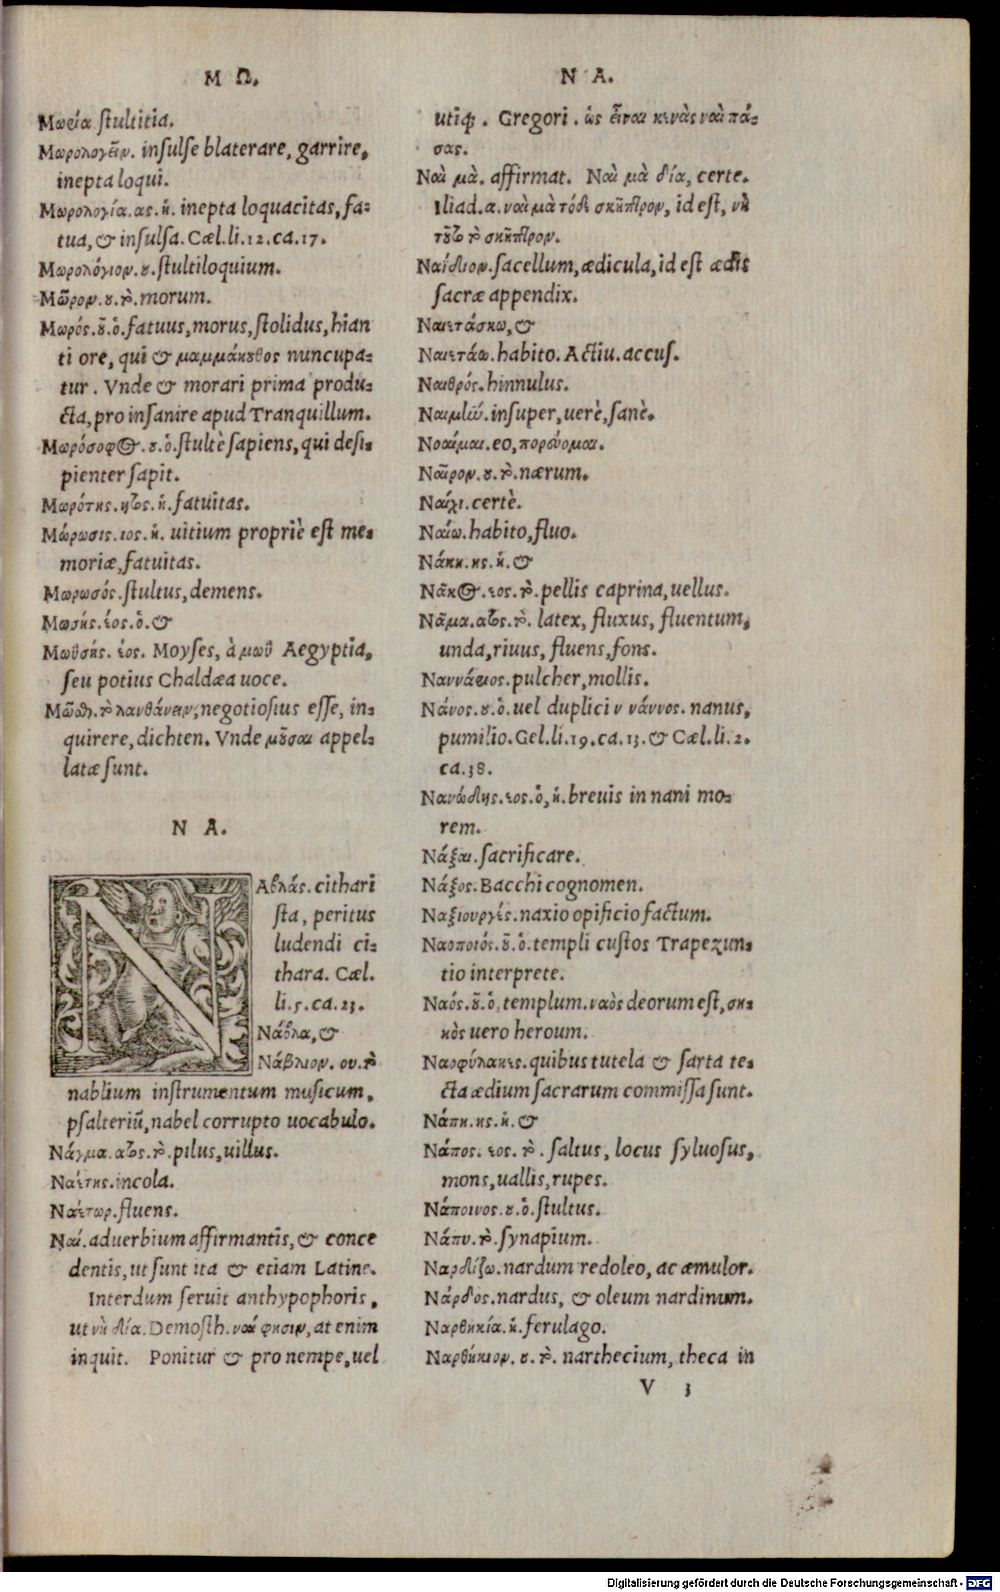 Μ Ω.
Μωρία stultitia.
Μωρολογεῖν. insulse blaterare, garrire,
inepta loqui.
Μωρολογία. ας. ἡ. inepta loquacitas, fa-
tua, & insulsa. Cæl. li. 12. ca. 17.
Μωρολόγιον. ου. stultiloquium.
Μῶρον. ου. τὸ. morum.
Μωρός. οῦ. ὁ. fatuus, morus, stolidus, hian
ti ore, qui & μαμμάκουθος nuncupa-
tur. Vnde & morari prima produ-
cta, pro insanire apud Tranquillum.
Μωρόσοφος. ου. ὁ. stultè sapiens, qui desi-
pienter sapit.
Μωρότης. ητος. ἡ. fatuitas.
Μώρωσις. ιος. ἡ. uitium propriè est me-
moriæ, fatuitas.
Μωρωσός. stultus, demens.
Μωσής. έος. ὁ. &
Μωϋσής. έος. Moyses, à μωῦ Aegyptia,
seu potius Chaldæa uoce.
Μῶσθ. τὸ λανθάνειν, negotiosius esse, in-
quirere, dichten. Vnde μοῦσαι appel-
latæ sunt.
Ν Α.
ΝΑβλάς. cithari
sta, peritus
ludendi ci-
thara. Cæl.
li. 5. ca. 23.
Νάβλα, &
Νάβλιον. ου. τὸ
nablium instrumentum musicum,
psalteriū, nabel corrupto uocabulo.
Νάγμα. ατος. τὸ. pilus, uillus.
Ναέτης. incola.
Ναέτωρ. fluens.
Ναί. aduerbium affirmantis, & conce
dentis, ut sunt ita & etiam Latine.
Interdum seruit anthypophoris,
ut νὴ δία. Demosth. ναί φησιν, at enim
inquit. Ponitur & pro nempe, uel
Ν Α.
utiq;. Gregori. ὡς εἶναι κενὰς ναὶ πά-
σας.
Ναὶ μὰ. affirmat. Ναὶ μὰ δία, certe.
Iliad. α. ναὶ μὰ τόδε σκῆπτρον, id est, νὴ
τοῦτο τὸ σκῆπτρον.
Ναΐδιον. sacellum, ædicula, id est ædis
sacræ appendix.
Ναιετάσκω, &
Ναιετάω. habito. Actiu. accus.
Ναιθρός. hinnulus.
Ναιμὴν. insuper, uerè, sanè.
Νοαίμαι. eo, πορεύομαι.
Ναῖρον. ου. τὸ. nærum.
Ναίχι. certè.
Ναίω. habito, fluo.
Νάκη. ης. ἡ. &
Νᾶκος. εος. τὸ. pellis caprina, uellus.
Νᾶμα. ατος. τὸ. latex, fluxus, fluentum,
unda, riuus, fluens, fons.
Ναννάριος. pulcher, mollis.
Νάνος. ου. ὁ. uel duplici ν νάννος. nanus,
pumilio. Gel. li. 19. ca. 13. & Cæl. li. 2.
ca. 38.
Νανώδης. εος. ὁ, ἡ. breuis in nani mo-
rem.
Νάξαι. sacrificare.
Νάξος. Bacchi cognomen.
Ναξιουργές. naxio opificio factum.
Ναοποιός. οῦ. ὁ. templi custos Trapezun-
tio interprete.
Ναός. οῦ. ὁ. templum. ναὸς deorum est, ση-
κὸς uero heroum.
Ναοφύλακες. quibus tutela & sarta te-
cta ædium sacrarum commissa sunt.
Νάπη. ης. ἡ. &
Νάπος. εος. τὸ. saltus, locus syluosus,
mons, uallis, rupes.
Νάποινος. ου. ὁ. stultus.
Νάπυ. τὸ. synapium.
Ναρδίζω. nardum redoleo, ac æmulor.
Νάρδος. nardus, & oleum nardinum.
Ναρθηκία. ἡ. ferulago.
Ναρθήκιον. ου. τὸ. narthecium, theca in
V 3
Digitalisierung gefördert durch die Deutsche Forschungsgemeinschaft - DFG